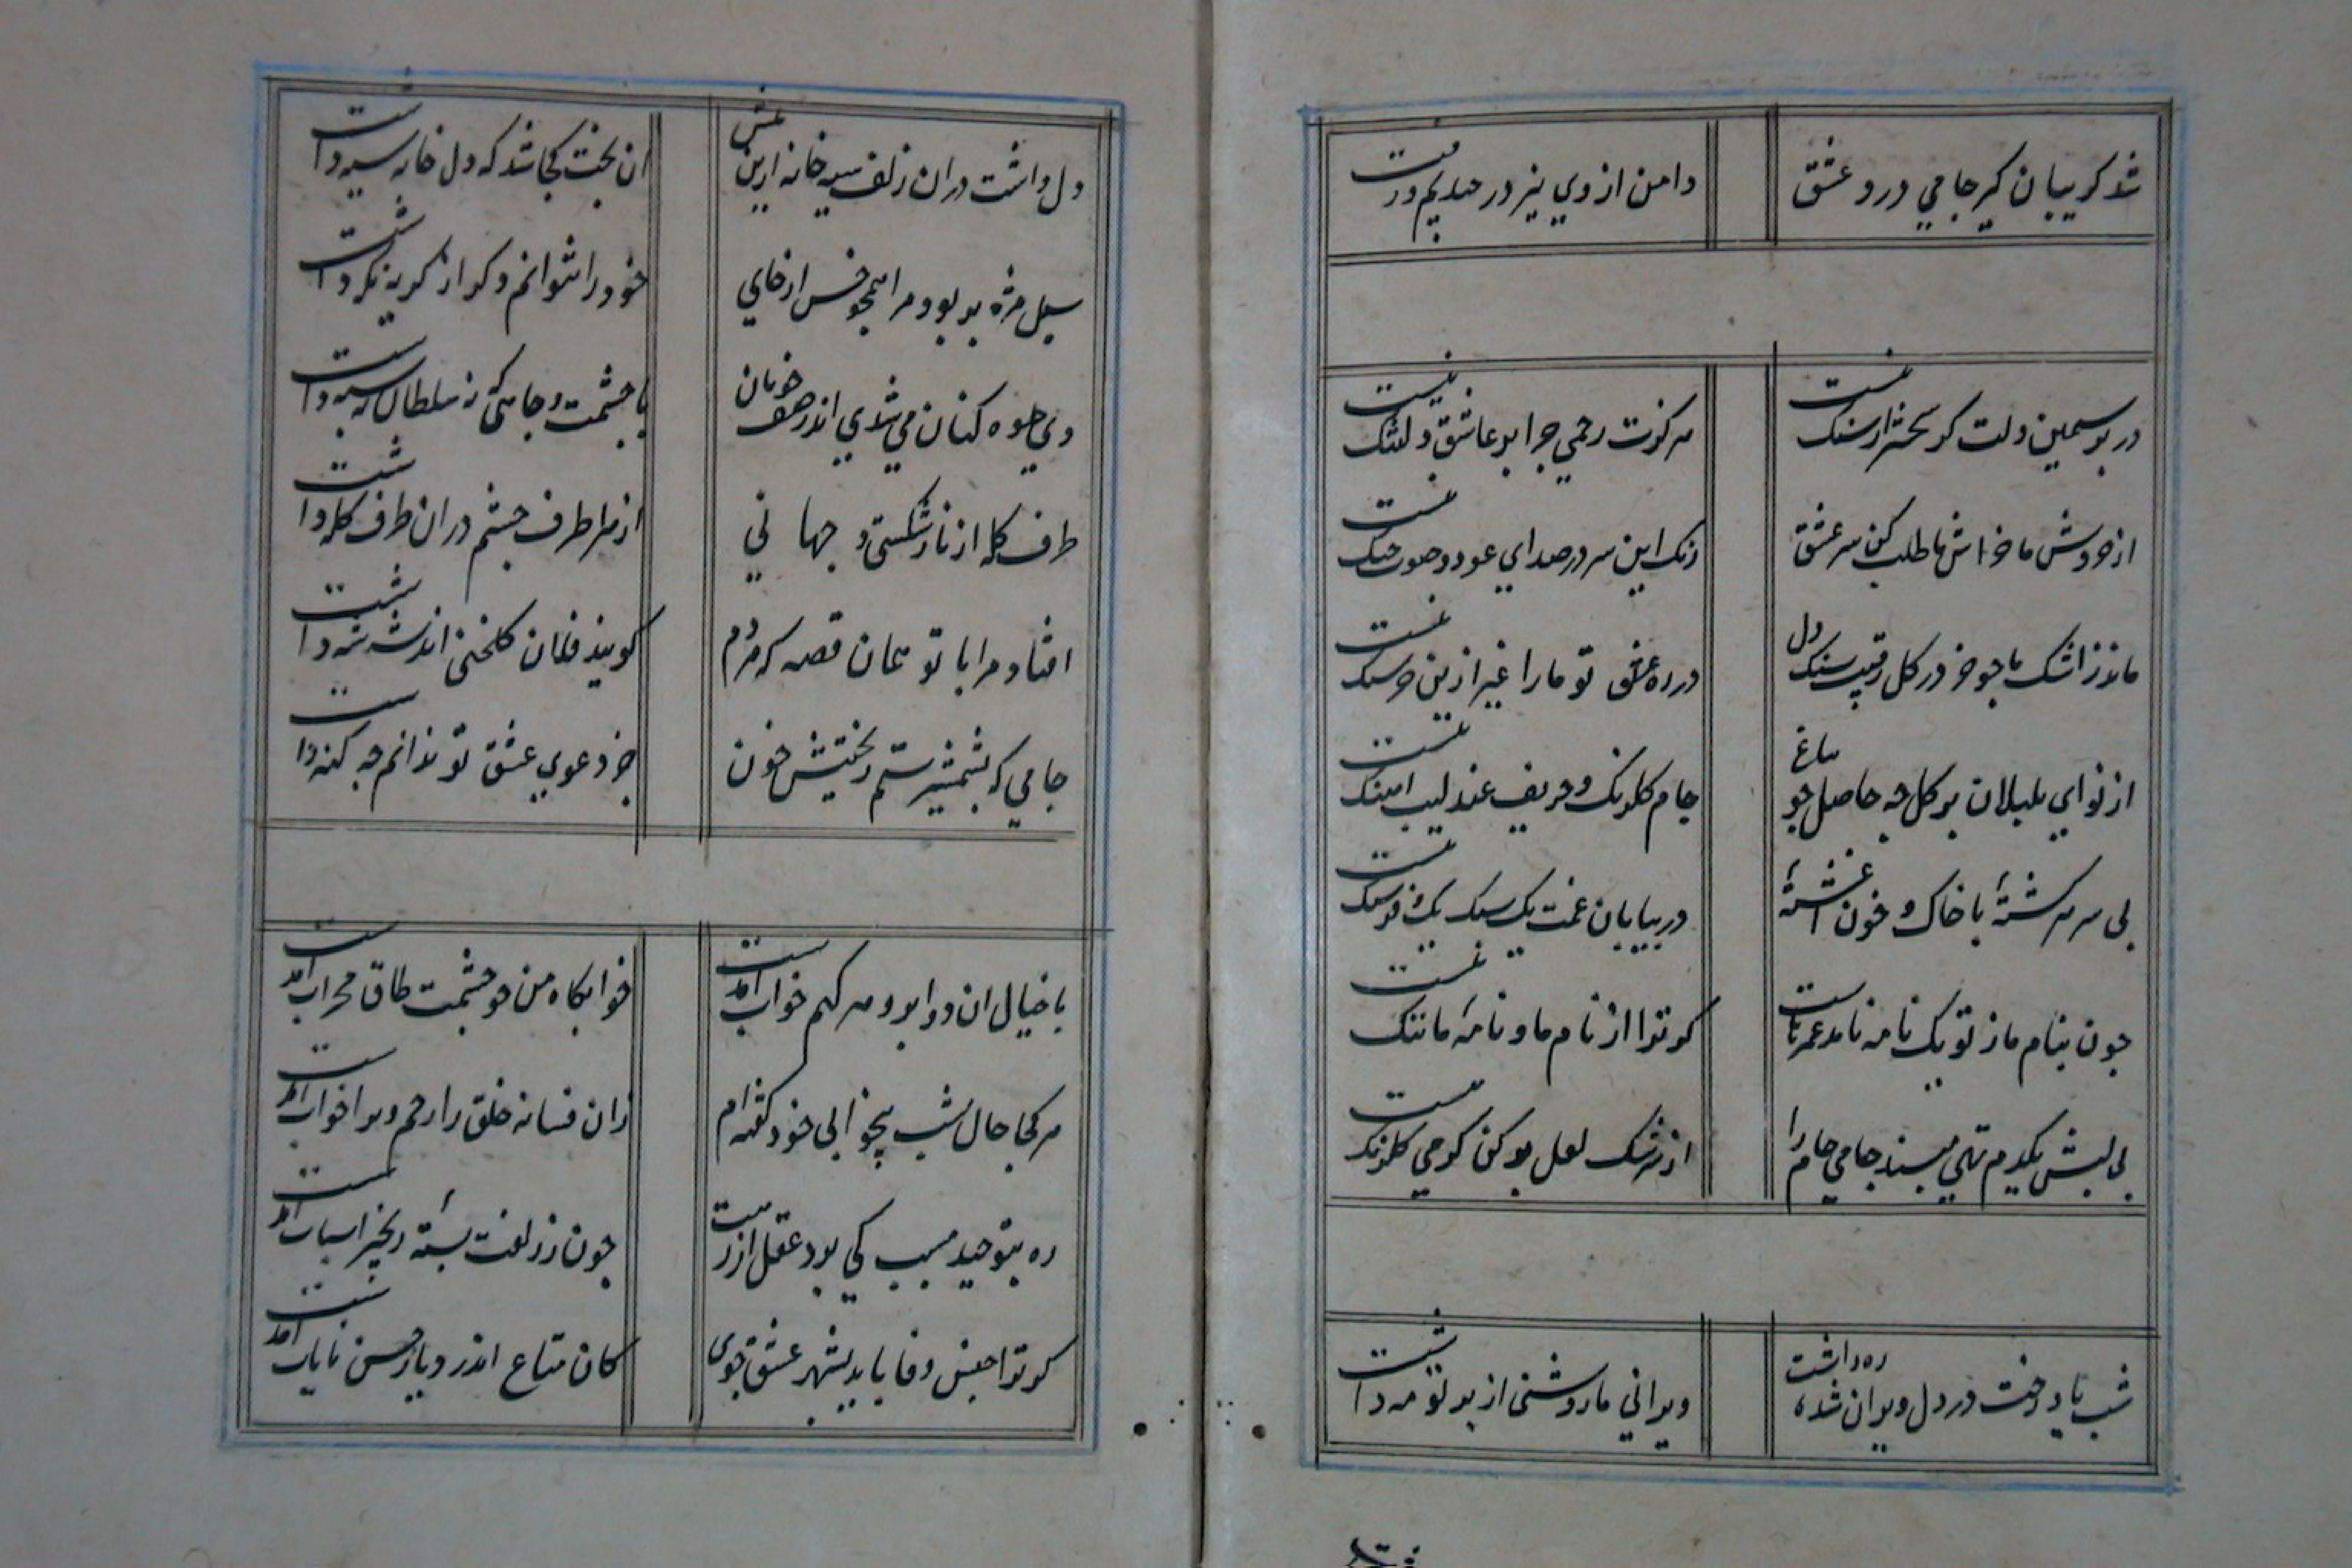 شد کریبان کیر جامی درد عشق
دامن از وی نیز در جیدیم ورفت
در بر سیمین دلت کر سخت تر از سنک نیست
مر کزت رحمی جرا بر عاشق دلتنک نیست
از خروش ما خراش ما طلب کن سر عشق
زنک این سر در صدای عود و صوت جنک نیست
ماند ز اشک ما جو خر در کل رقیب سنک دل
در ره عشق تو ما را غیر ازین خرسنک نیست
از نوای بلبلان بر کل جه حاصل جو بباغ
جام کلرنک و حریف عندلیب اهنک نیست
بی سر سرکشتهٔ با خاک و خون اغشتهٔ
در بیابان غمت یک سنک یک فرسنک نیست
جون بنام ما ز تو یک نامه نامد عمرهاست
کر ترا از نام ما و نامهٔ ما ننک نیست
بی لبش یکدم تهی مپسند جامی جام را
از سرشک لعل پر کن کر می کلرنک نیست
شب یاد رخت در دل ویران شده ره داشت
ویرانی ما روشنی از پرتو مه داشت
دل داشت در ان زلف سیه خانه ازین پیش
ان بخت کجا شد که دل خانه سیه داشت
سیل مژه بربود مرا همجو خس از جای
خود را نتوانم دکر از کریه نکه داشت
دی جلوه کنان می شدی اندر صف خوبان
با حشمت و جاهی که نه سلطان نه سپه داشت
طرف کله از ناز شکستی و جهانی
از هر طرف جشم در ان طرف کله داشت
افتاد مرا با تو همان قصه که مردم
کویند فلان کلخنی اندیشه شه داشت
جامی که بشمشیر ستم ریختیش خون
جز دعوی عشق تو ندانم جه کنه داشت
با خیال ان دو ابرو سر کهم خواب امدست
خوابکاه من جو جشمت طاق محراب امدست
هر کجا حال شب بیخوابی خود کفته ام
زان فسانه خلق را رحم و مرا خواب امدست
ره بتوحید مسبب کی برد عقل ازرست
جون ز زلفت بستهٔ زنجیر اسباب امدست
کر ترا جنس وفا باید بشهر عشق جوی
کان متاع اندر دیار حسن نایاب امدست